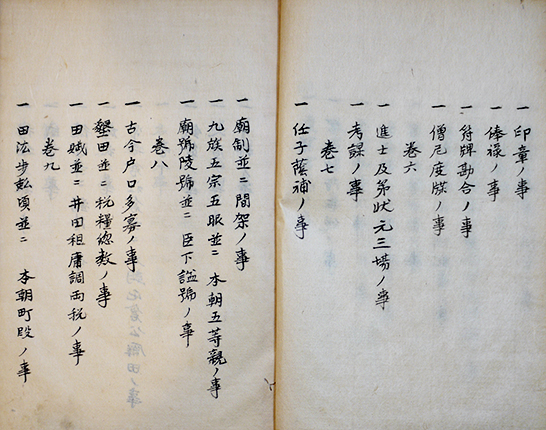 一 印章ノ事
一 俸禄ノ事
一 符牌勘合ノ事
一 僧尼度牒ノ事
巻六
一 進士及第状元三場ノ事
一 考課ノ事
巻七
一 任子蔭補ノ事
一 廟制並ニ間架ノ事
一 九族五宗五服並ニ 本朝五等親ノ事
一 廟號陵號並ニ 臣下謚號ノ事
巻八
一 古今户口多寡ノ事
一 墾田並ニ税糧總数ノ事
一 田賦並ニ井田租庸調両税ノ事
巻九
一 田法步畝頃並ニ 本朝町段ノ事